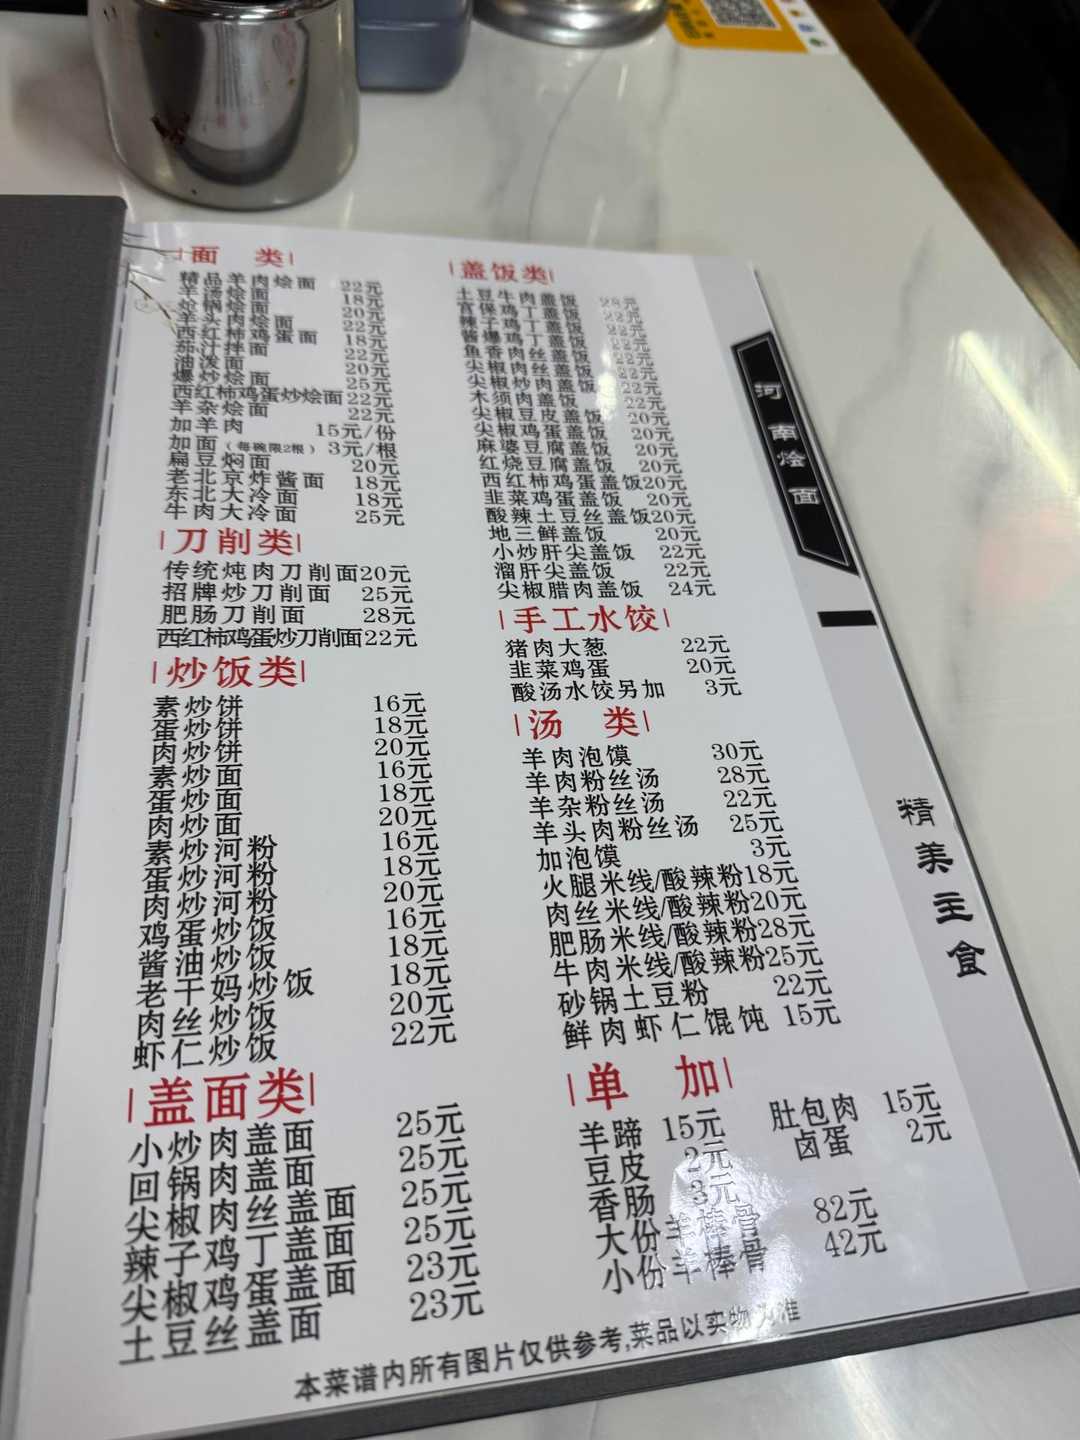 面 类
精品羊肉烩面 22元
羊汤烩面 18元
炝锅烩面 20元
羊头肉烩面 22元
西红柿鸡蛋面 18元
茄汁拌面 22元
油泼面 20元
爆炒烩面 25元
西红柿鸡蛋炒烩面 22元
羊杂烩面 22元
加羊肉 15元/份
加面(每碗限2根) 3元/根
扁豆焖面 20元
老北京炸酱面 18元
东北大冷面 18元
牛肉大冷面 25元
刀削类
传统炖肉刀削面 20元
招牌炒刀削面 25元
肥肠刀削面 28元
西红柿鸡蛋炒刀削面 22元
炒饭类
素炒饼 16元
蛋炒饼 18元
肉炒饼 20元
素炒面 16元
蛋炒面 18元
肉炒面 20元
素炒河粉 16元
蛋炒河粉 18元
肉炒河粉 20元
鸡蛋炒饭 16元
酱油炒饭 18元
老干妈炒饭 18元
肉丝炒饭 20元
虾仁炒饭 22元
盖面类
小炒肉盖面 25元
回锅肉盖面 25元
尖椒肉丝盖面 25元
辣子鸡丁盖面 25元
尖椒鸡蛋盖面 23元
土豆丝盖面 23元
盖饭类
土豆牛肉盖饭 28元
宫保鸡丁盖饭 22元
辣子鸡丁盖饭 22元
酱爆鸡丁盖饭 22元
鱼香肉丝盖饭 22元
尖椒肉丝盖饭 22元
尖椒炒肉盖饭 22元
木须肉盖饭 22元
尖椒豆皮盖饭 20元
尖椒鸡蛋盖饭 20元
麻婆豆腐盖饭 20元
红烧豆腐盖饭 20元
西红柿鸡蛋盖饭 20元
韭菜鸡蛋盖饭 20元
酸辣土豆丝盖饭 20元
地三鲜盖饭 20元
小炒肝尖盖饭 22元
溜肝尖盖饭 22元
尖椒腊肉盖饭 24元
手工水饺
猪肉大葱 22元
韭菜鸡蛋 20元
酸汤水饺另加 3元
汤 类
羊肉泡馍 30元
羊肉粉丝汤 28元
羊杂粉丝汤 22元
羊头肉粉丝汤 25元
加泡馍 3元
火腿米线/酸辣粉 18元
肉丝米线/酸辣粉 20元
肥肠米线/酸辣粉 28元
牛肉米线/酸辣粉 25元
砂锅土豆粉 22元
鲜肉虾仁馄饨 15元
单 加
羊蹄 15元 肚包肉 15元
豆皮 2元 卤蛋 2元
香肠 3元
大份羊棒骨 82元
小份羊棒骨 42元
本菜谱内所有图片仅供参考,菜品以实物为准
河南烩面
精美主食